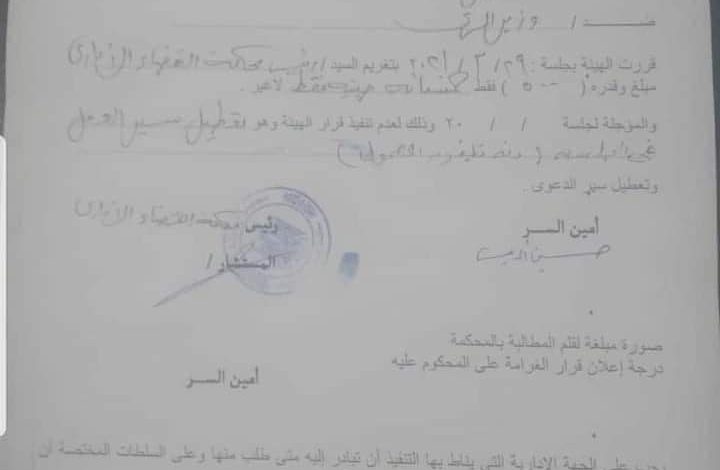 ضد / وزير
قررت الهيئة بجلسة : ٢٩ / ٣ / ٢٠٢١ بتغريم السيد / رئيس محكمة القضاء الإدارى
مبلغ وقدره ( ٥٠٠ ) فقط خمسمائة جنيه فقط لاغير .
والمؤجلة لجلسة / / ٢٠ وذلك لعدم تنفيذ قرار الهيئة وهو تعطيل سير العمل
( رنة تليفون المحمول )
وتعطيل سير الدعوى .
أمين السر رئيس محكمة القضاء الإدارى
حسين المستشار /
صورة مبلغة لقلم المطالبة بالمحكمة
درجة إعلان قرار الغرامة على المحكوم عليه
أمين السر
على الجهة الإدارية التي يناط بها التنفيذ أن تبادر إليه متى طلب منها وعلى السلطات المختصة أن